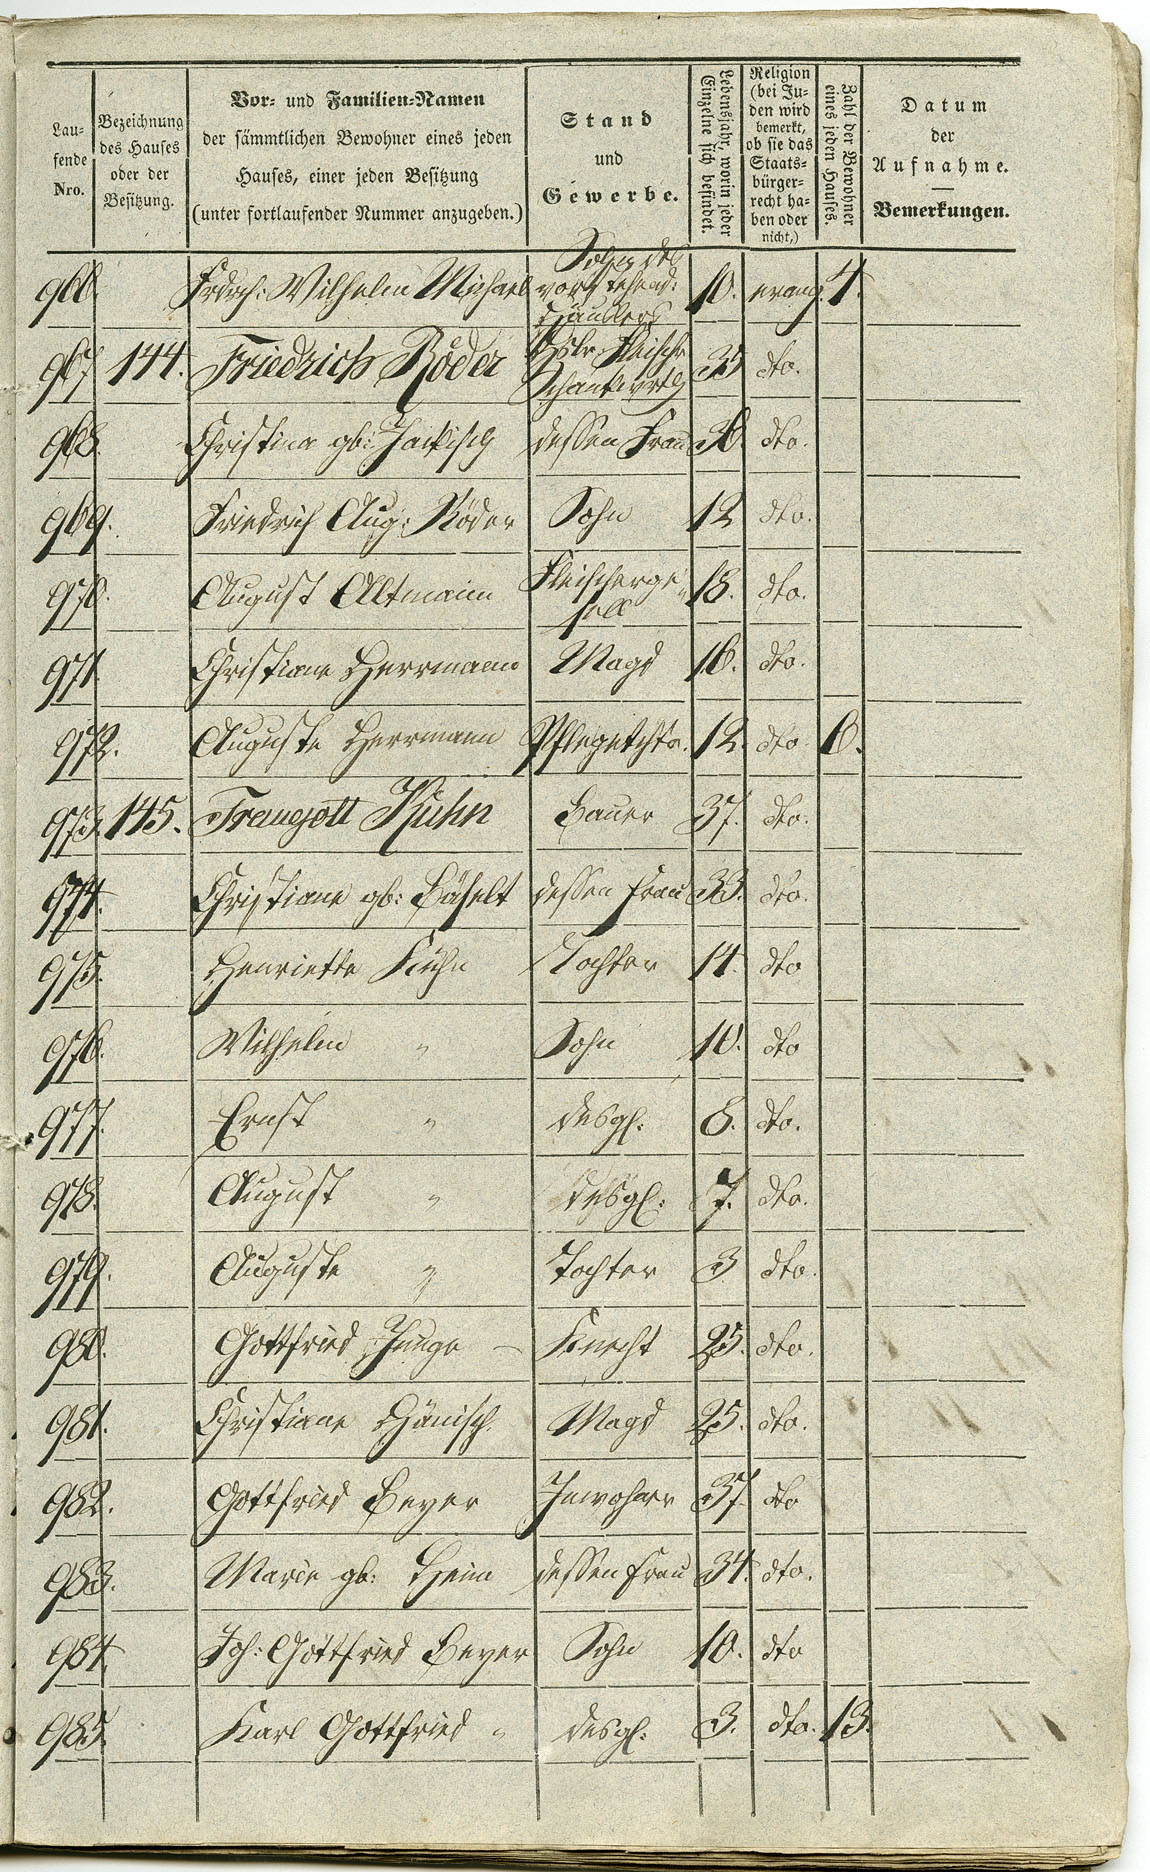 Lau-
fende
Nro.
Bezeichnung
des Hauses
oder der
Besitzung.
Vor- und Familien-Namen
der sämmtlichen Bewohner eines jeden
Hauses, einer jeden Besitzung
(unter fortlaufender Nummer anzugeben.)
Stand
und
Gewerbe.
Lebensjahr, worin jeder
Einzelne sich befindet.
Religion
(bei Ju-
den wird
bemerkt,
ob sie das
Staats-
bürger-
recht ha-
ben oder
nicht,)
Zahl der Bewohner
eines jeden Hauses.
Datum
der
Aufnahme.
Bemerkungen.
966. Frdrch: Wilhelm Michael Sohn des vorstehend: Häuslers 10. evang. 4.
967 144. Friedrich Röder Fleischr 35 dto.
968. Christina gb: dessen Frau 36. dto.
969. Friedrich Aug: Röder Sohn 12 dto.
970. August Altmann Fleischerge- sell 18. dto.
971. Christiane Herrmann Magd 16. dto.
972. Auguste Herrmann Pflegetchtr. 12. dto. 6.
973. 145. Traugott Kühn Bauer 37. dto.
974. Christiane gb: Bäselt dessen Frau 33. dto.
975. Henriette Kühn Tochter 14. dto
976. Wilhelm " Sohn 10. dto
977. Ernst " desgl: 8. dto.
978. August " desgl: 7. dto.
979. Auguste " Tochter 3 dto.
980. Gottfried Junge – Knecht 25. dto.
981. Christiane Hänisch. Magd 25. dto.
982. Gottfried Beyer Inwohner 37 dto
983. Marie gb: Heim dessen Frau 34. dto.
984. Joh: Gottfried Beyer Sohn 10. dto
985. Karl Gottfried " desgl: 3. dto. 13.